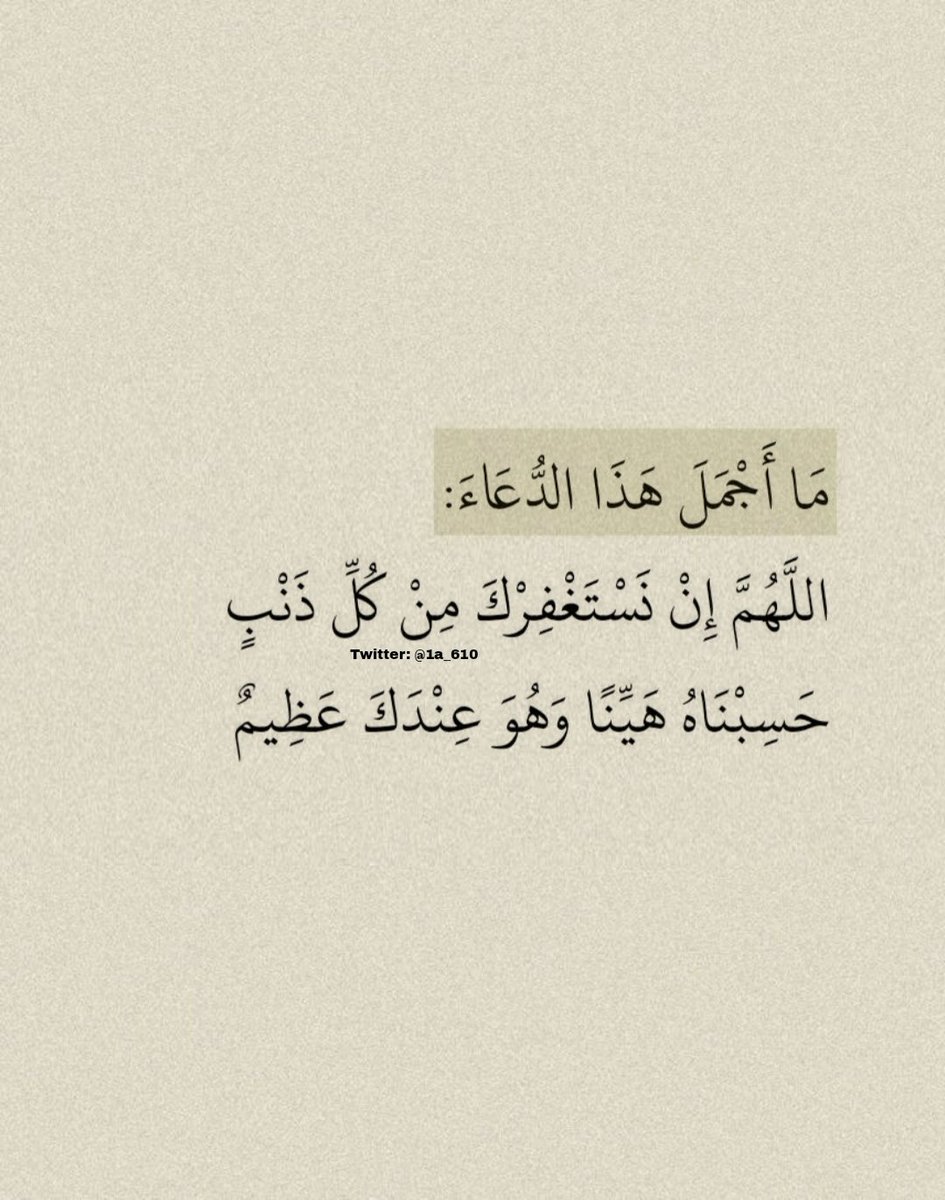 مَا أَجْمَلَ هَذَا الدُّعَاءَ:
اللَّهُمَّ إِنْ نَسْتَغْفِرْكَ مِنْ كُلِّ ذَنْبٍ
Twitter: @1a_610
حَسِبْنَاهُ هَيِّنًا وَهُوَ عِنْدَكَ عَظِيمٌ